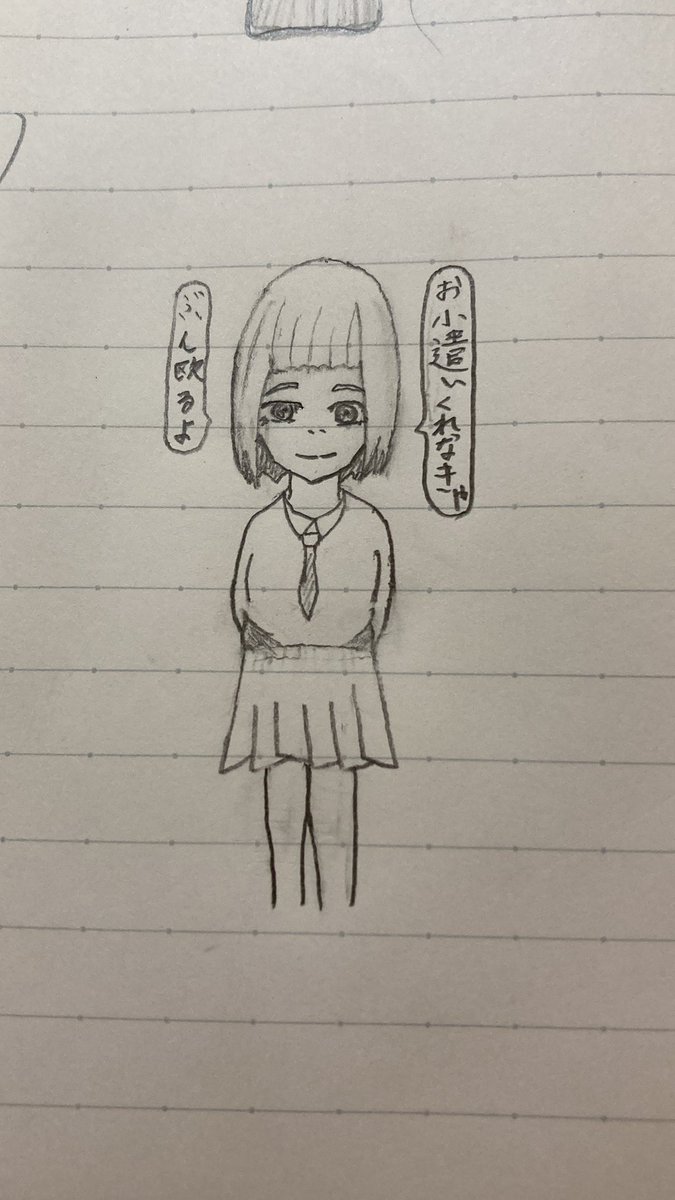 お小遣いくれなきゃ
ぶん殴るよ